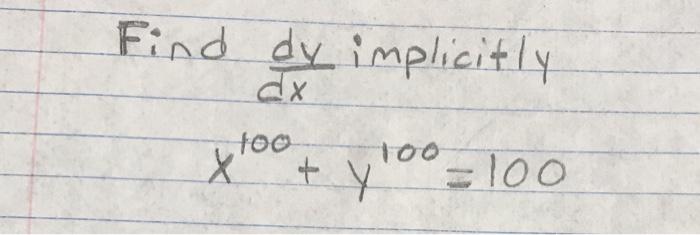 Find dy/dx implicitly
x^100 + y^100 = 100